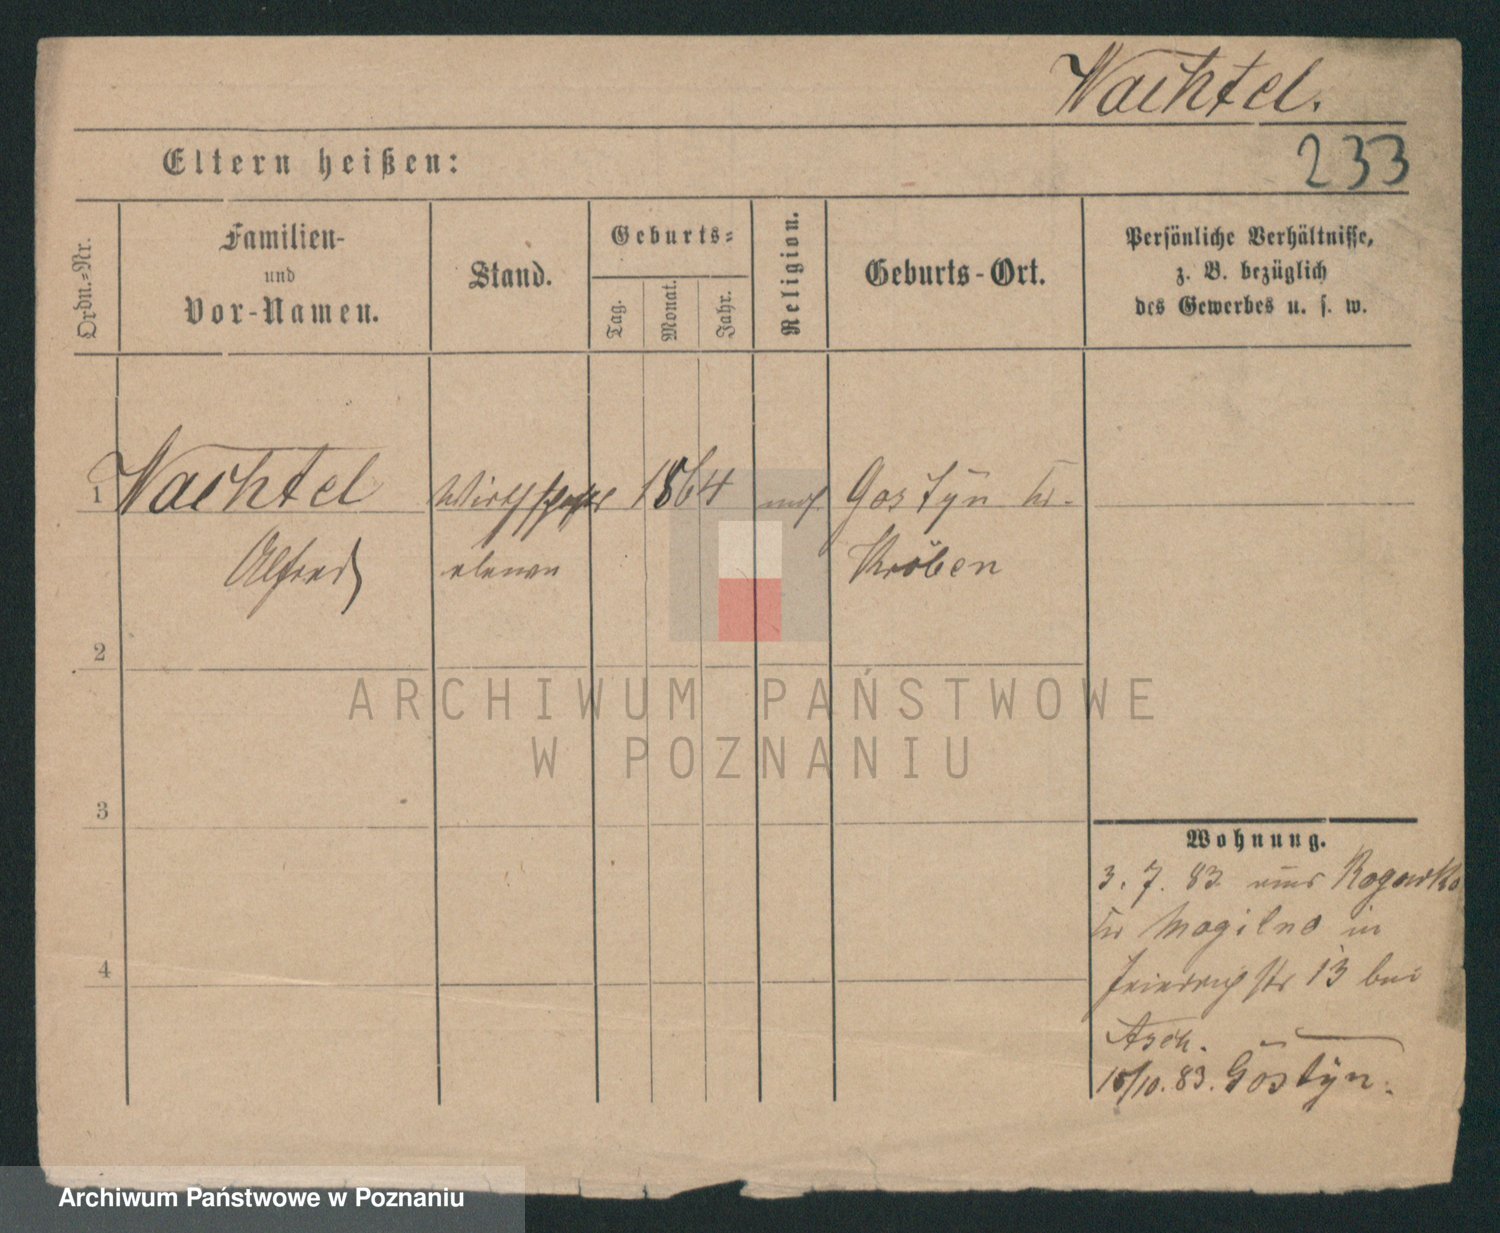 Wachtel.
233
Eltern heißen:
Ordn.-Nr.
Familien-
und
Vor-Namen.
Stand.
Geburts-
Tag.
Monat.
Jahr.
Religion.
Geburts-Ort.
Persönliche Verhältnisse,
z. B. bezüglich
des Gewerbes u. s. w.
1 Wachtel 1864 mos. Gostÿn Kr.
Alfred Kröben
2
ARCHIWUM PAŃSTWOWE
W POZNANIU
3
4
Wohnung.
3. 7. 83 aus Rogowko
Kr Mogilno in
Friedrichstr 13 bei
Asch.
15/10. 83. Gostÿn.
Archiwum Państwowe w Poznaniu